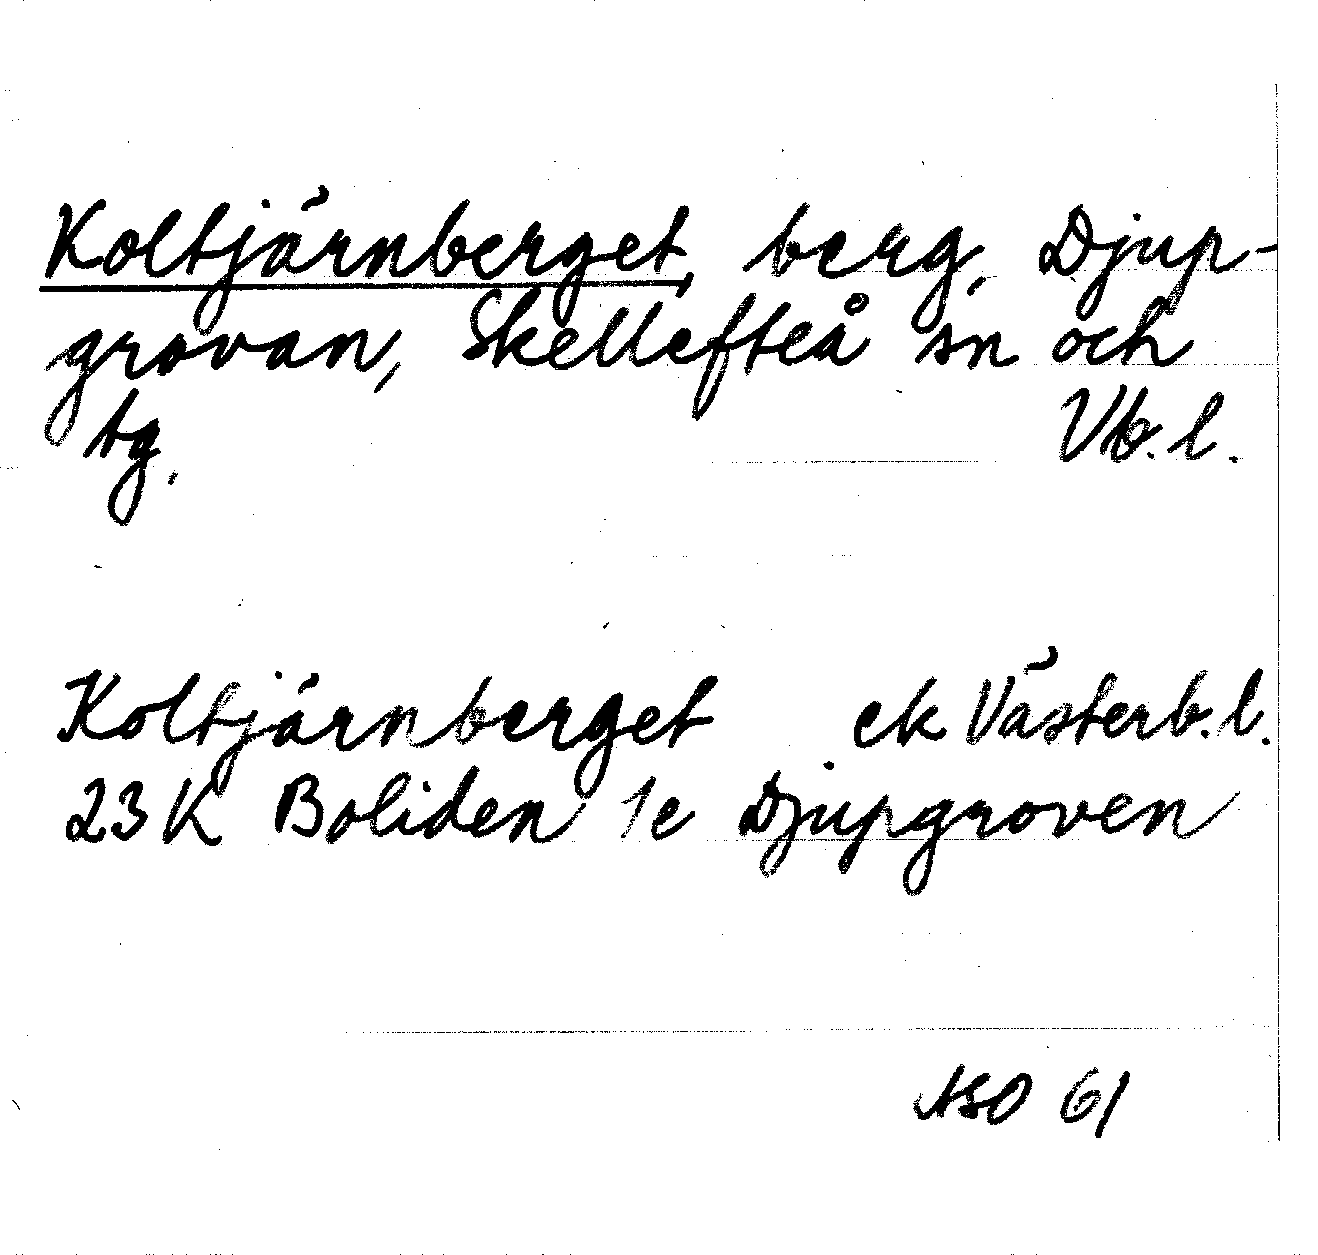 Koltjärnberget, berg, Djup-
grovan, Skellefteå sn och
tg. Vb.l.
Koltjärnberget ek Västerb.l.
23K Boliden 1e Djupgroven
ASO 61